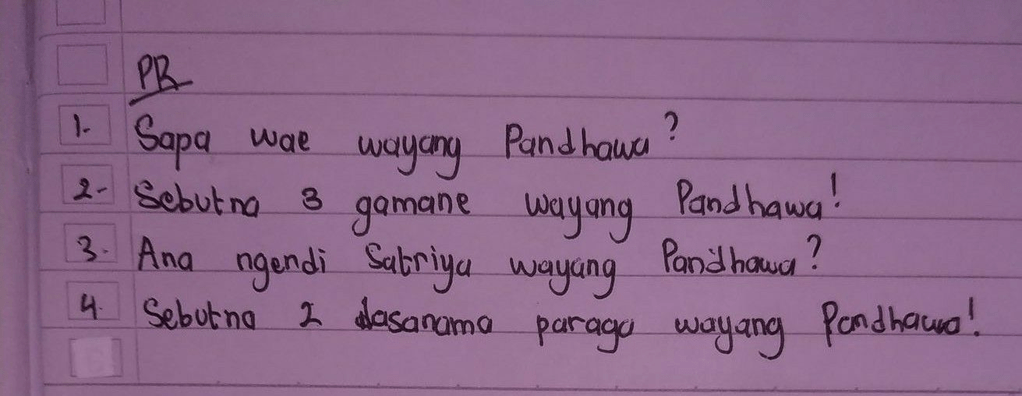 PR
1. Sapa wae wayang Pandhawa?
2. Sebutna 3 gamane wayang Pandhawa!
3. Ana ngendi Satriya wayang Pandhawa?
4. Sebutna 2 dasanama paraga wayang Pandhawa!